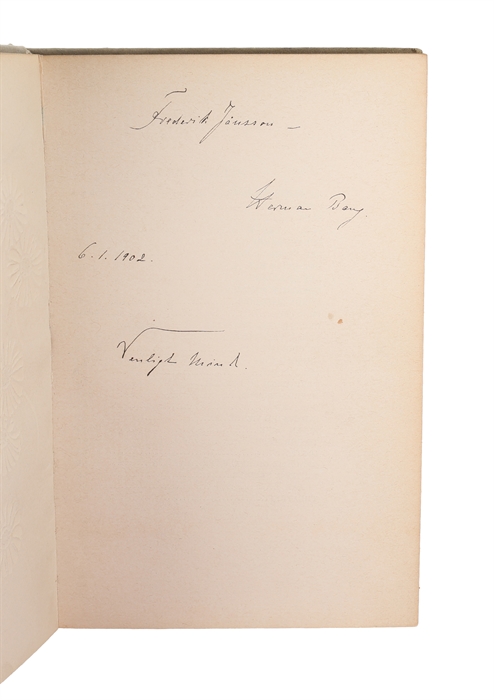 Frederik Jansson —
Herman Bang.
6.1.1902.
Venligst